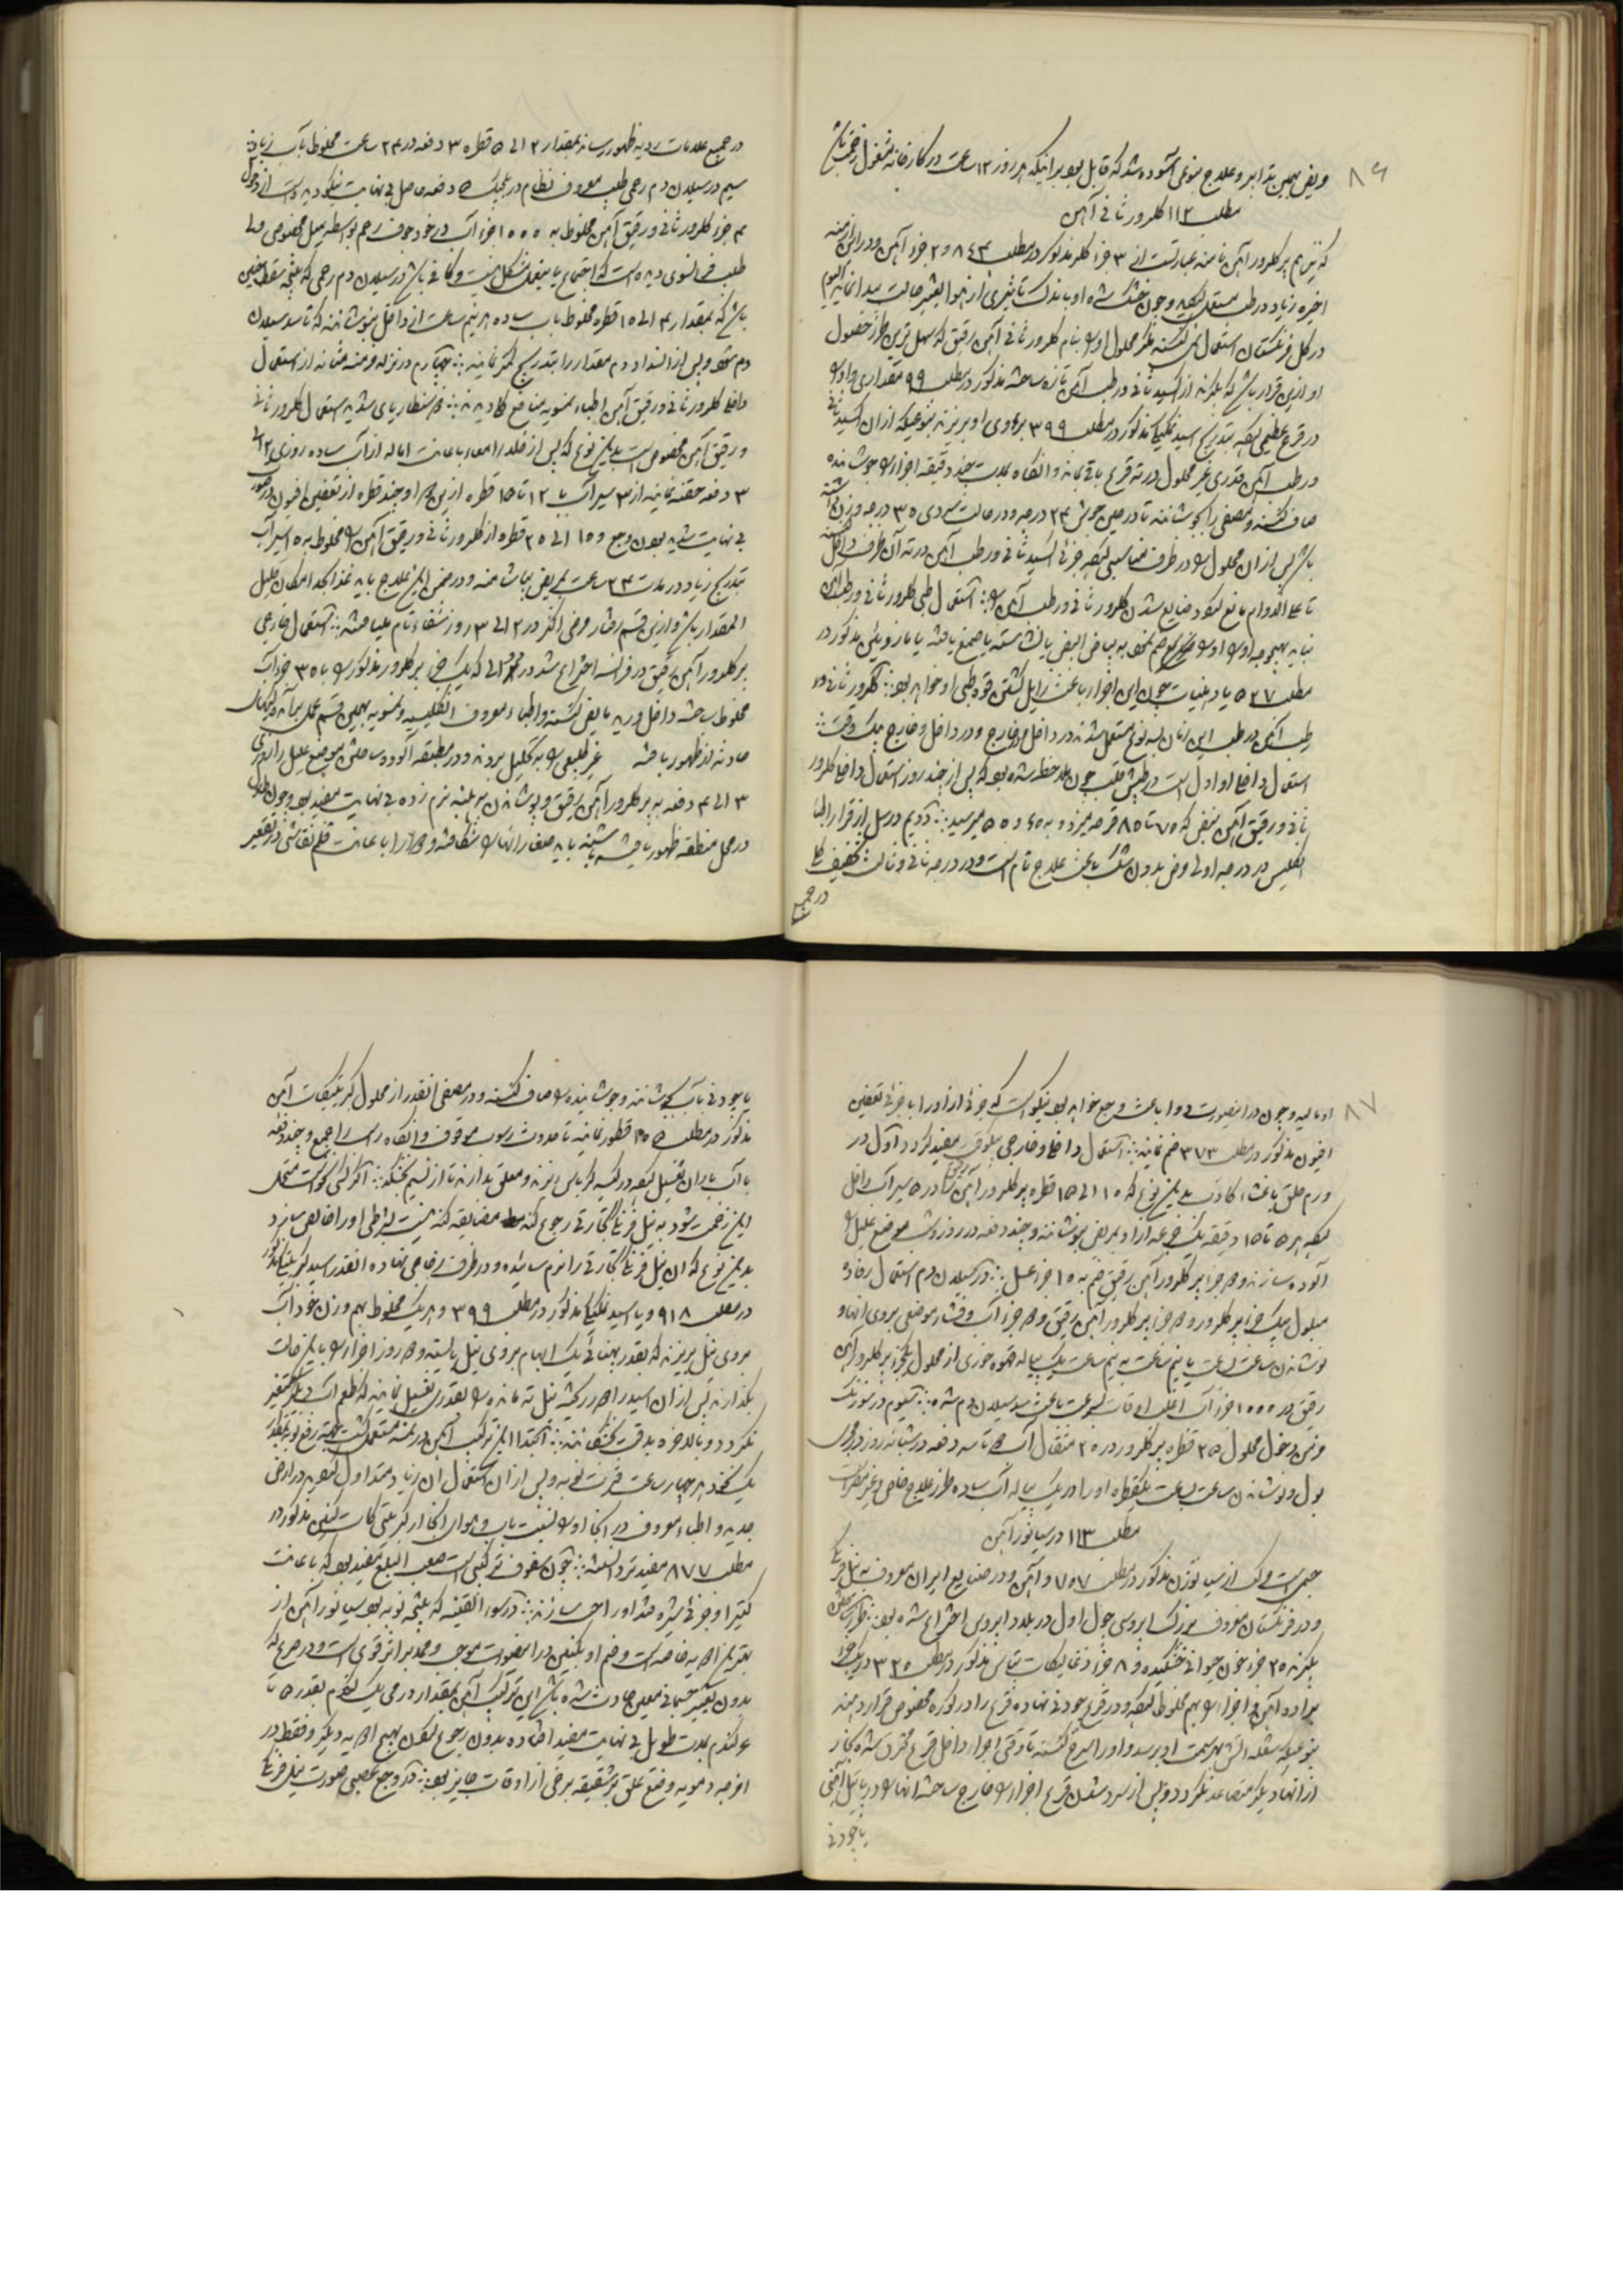 ۸۶
مریض بهمین تدابیر و علاج بنوعی آسوده شد که قابل بود برانیکه هر روز ۱۲ ساعت در کارخانه مشغول زحمت باشد
مطلب ۱۱۲ کلرور ثانی آهن
که نیز اسم پر کلرور آهن نامند عبارتست از ۳ جزء کلر مذکور در مطلب ۸۴۳ و ۲ جزء آهن و در این ازمنه
اخیره زیاد در طب مستعمل گشته و چون خشک شده او باندک تاثیری از هوا تغییر حالت پیدا نماید الیوم
در کل فرنگستان استعمال نمی کنند مگر محلول او را بنام کلرور ثانی آهن رقیق که سهل ترین طرز حصول
او ازین قرار باشد که بگیرند از اکسید ثانی و رطب آهن تازه ساخته مذکور در مطلب ۹۹ مقداری و او را
در قرع عظیمی نهاده بتدریج اسید نمکی مذکور در مطلب ۳۹۹ بروی او بریزند بنوعیکه از ان اکسید ثانی
و رطب آهن قدری غیر محلول در ته قرع باقی ماند و انگاه بمدت چند دقیقه اجزا را جوشانده
صاف کنند و مصفی را بجوشانند تا در حین جوش ۲۴ درجه و در حالت سردی ۳۵ درجه وزن داشته
باشد پس از ان محلول را در ظرف مناسبی نهاده جزئی اکسید ثانی و رطب آهن در ته آن ظرف داخل کنند
تا علی الدوام مانع گردد ضایع شدن کلرور ثانی و رطب آهن را استعمال طبی کلرور ثانی و رطب آهن
نباید بهیچوجه او را ضم نمود به بیاض البیض یا نشاسته یا صمغ یافته یا مازوئین مذکور در
مطلب ۵۲۷ یا دهنیات چون این اجزا باعث زایل گشتن قوه طبی او خواهد بود کلرور ثانی و
رطب آهن در طب این زمان بسه نوع مستعمل شده در داخل و در خارج و در داخل و خارج بیک وقت
استعمال داخلی او اول است در طپش قلب چون ملاحظه شده بود که پس از چند روز استعمال داخلی کلرور
ثانی و رقیق آهن نبضی که ۷۵ تا ۸۵ قرعه میزد به ۶۰ و ۵۵ میرسید دویم در سل از قرار اطبا
انگلیس در درجه اولی مرض بدون شک باعث علاج تام است و در درجه ثانی و ثالث تخفیف کلی
در جمیع
در جمیع علامات ردیه بظهور رساند بمقدار ۲ الی ۵ قطره ۳ دفعه در ۲۴ ساعت مخلوط بآب زیاد
سیم در سیلان دم رحمی طبیب معروف نظام در بلجیک ۵ دفعه حاصل بی نهایت نیکو دیده است از دخول
۳ جزء کلرور ثانی و رقیق آهن مخلوط به ۱۰۰۰ جزء آب در خود جوف رحم بواسطه میل مخصوص ولی
طبیب فرانسوی دیده است که احتیاج باین عمل مشکل نیست و کافی باشد در سیلان دم رحمی که نتیجه سقط جنین
باشد که بمقدار ۳ الی ۱۵ قطره مخلوط بآب ساده هر نیم ساعت از داخل بنوشانند که تا سد سیلان
دم شود و پس از انسداد دم مقدار را بتدریج کمتر نمایند چهارم در نزله مزمنه مثانه از استعمال
داخلی کلرور ثانی و رقیق آهن اطباء نمسویه منافع کلی دیدند پنجم زحار پای شدید استعمال کلرور ثانی
و رقیق آهن مخصوص است بدین نوع که پس از خلو امعاء باعانت اماله از آب ساده روزی ۲ الی
۳ دفعه حقنه نمایند از ۳ سیر آب با ۱۲ تا ۱۵ قطره ازین جوهر و چند قطره از تعفین افیون و در صورت
بی نهایت شدید بودن وجع و ۱۵ الی ۲۵ قطره از کلرور ثانی و رقیق آهن را مخلوط به ۵ سیر آب
بتدریج زیاد در مدت ۲۴ ساعت بمریض بپاشند و در ضمن این علاج باید غذا بحد امکان قلیل
المقدار باشد و ازین قسم رفتار مرض اکثر در ۲ الی ۳ روز شفاء تام یافته استعمال خارجی
پر کلرور آهن رقیق در فرانسه اختراع شد در محلولی که یک جزء پر کلرور مذکور را با ۳۵ جزء آب
مخلوط ساخته داخل ورید مریض کنند و اطباء معروف انگلیسیه و نمسویه بهمین قسم عمل
حادثه از ظهور یافته غیر طبیعی را به تحلیل بردند و در مطبقه آلوده ساختن موضع علیل را روزی
۳ الی ۴ دفعه به پر کلرور آهن رقیق و پوشاندن به پنبه نرم زده بی نهایت مفید بود و چون طاول
در محل منطقه ظهور یافته باشد باید صغار انها را شکافته و هر روز باعانت قلم نقاشی در تقعیر
۸۷
او مالید و چون در اینصورت دوا باعث وجع خواهد بود نیکو است که جزئی از او را با جزئی تعفین
افیون مذکور در مطلب ۳۷۳ ضم نمایند استعمال داخلی و خارجی بیک وقت مفید گردد اول در
ورم حلق با غشاء کاذب بدین نوع که ۱۰ الی ۱۵ قطره پر کلرور آهن رقیق را در ۵ سیر آب داخل
کرده هر ۵ تا ۱۵ دقیقه یک جرعه از او بمریض بنوشانند و چند دفعه در روز و شب موضع علیل را
آلوده سازند و هر جزء پر کلرور آهن رقیق ضم به ۱۵ جزء عسل دویم در سیلان دم استعمال رفاده
مبلول بیک جزء پر کلرور و هر جزء پر کلرور آهن رقیق و هر جزء آب و فشار موضعی بروی انها و
نوشاندن ساعت بساعت یا نیم ساعت به نیم ساعت یک پیاله قهوه خوری از محلول یکجزء پر کلرور آهن
رقیق در ۱۰۰۰ جزء آب اغلب اوقات بسرعت باعث سد سیلان دم شده سیوم در سوزنک
مزمن دخول محلول ۲۵ قطره پر کلرور در ۲۰ مثقال آب ۲ تا سه دفعه در شبانه روز در مجرای
بول و نوشاندن ساعت بساعت یکقطره او را در یک پیاله آب ساده طرز علاج خاص و غیر مضر است
مطلب ۱۱۳ در سیانور آهن
جسمی است مرکب از سیانوژن مذکور در مطلب ۷۵۷ و آهن و در صنایع ایران معروف به نیل فرنگی
و در فرنگستان معروف بزرک ابروسی چون اول در بلاد ابروس اختراع شده بود طرز ساختن
بگیرند ۲۵ جزء خون حیوانی خشکیده و ۸ جزء ذغالیکات پتاس مذکور در مطلب ۳۲۵ و یک جزء
براده آهن و اجزا را بهم مخلوط کرده و در قرع چودنی نهاده قرع را در کوره مخصوص قرار دهند
بنوعیکه شعله اتش بهر سمت او برسد و او را سرخ کنند تا وقتی اجزا داخل قرع محترق شده بخار
از انها دیگر متصاعد نگردد و پس از سرد شدن قرع اجزا را خارج ساخته انها را در پاتیل آهنی
یا چودنی
یا چودنی بآب بجوشانند و جوشانیده را صاف کنند و در مصفی انقدر از محلول کبریتیکات آهن
مذکور در مطلب ۳۵ قطور نمایند تا حدوث رسوب موقوف و انگاه رسوب را جمع و چند دفعه
با آب باران تغسیل کرده در کیسه کرباس ریزند و معلق بدارند تا از نسیم بخشکد اگر کسی نخواست متحمل
این زحمت شود به نیل فرنگی تجارتی رجوع کند مضایقه کند نیست بشرطی او را خالص سازد
بدین نوع که ان نیل فرنگی تجارتی را نرم سائیده و در ظرف زجاجی نهاده انقدر اسید کبریتیکی مذکور
در مطلب ۹۱۸ و یا اسید نمکی مذکور در مطلب ۳۹۹ و هر یک مخلوط بهم وزن خود آب
بروی نیل بریزند که بقدر پهنائی یک ابهام بروی نیل بایستد و ۲ روز اجزا را باین حالت
بگذارند پس از ان اسید را دور ریخته نیل ته مانده را بقدری تغسیل نمایند که طعم آب دیگر متغیر
نگردد و بالاخره بدقت بخشکانند ابتدا این ترکیب آهن در نمسه مستعمل گشت بجهت رفع نوبه بقدر
یک نخود هر چهار ساعت فترت نوبه و پس از ان استعمال ان زیاد متداول گردید در ارض
جدید و اطباء معروف در انجا او را نسبت بآب و هوای انجا از کبریتی کات کنین مذکور در
مطلب ۸۷۷ مفیدتر دانسته چون سفوف ترکیبی است صعب البلع مفید بود که باعانت
کتیرا و جزئی شیره قند او را حب سازند در سوء القنیه که نتیجه نوبه بود سیانور آهن از
بهترین ادویه خاصه است و ضم او بکنین در اینصورت موجب و ممد بر اثر قوی است و در صرع که
بدون تغییر جسمانی معین حادث شده باشد این ترکیب آهن بمقدار دومی یک گندم بقدر ۵ تا
۶ گندم بمدت طویل بی نهایت مفید افتاده بدون رجوع کردن بهیچ ادویه دیگر و فقط در
امزجه دمویه وضع علق بر شقیقه برخی از اوقات جایز بود در وجع عصبی صورت نیل فرنگی